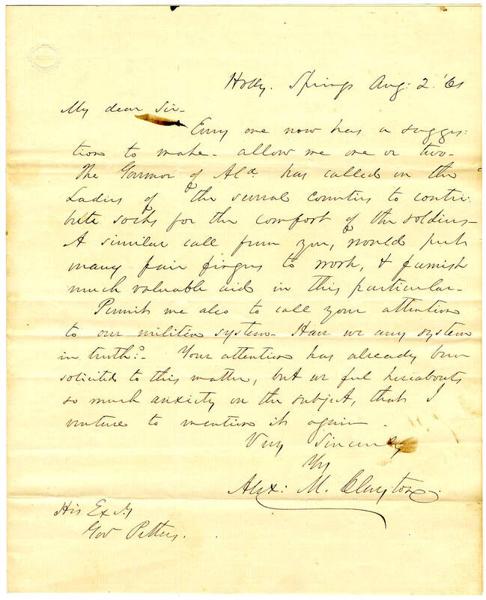 Holly Springs Aug: 2. '61
My dear Sir-
Every one now has a sugges-
tion to make- allow me one or two-
The Governor of Ala has called on the
Ladies of the several Counties to contri-
bute socks for the comfort of the soldiers-
A similar call from you, would put
many fair fingers to work, & furnish
much valuable aid in this particular-
Permit me also to call your attention
to our militia system- Have we any system
in truth?- Your attention has already been
solicited to this matter, but we feel hereabouts
so much anxiety on the subject, that I
venture to mention it again.
Very Sincerely
Yrs
Alex: M. Clayton.
His Exc'y
Gov Pettus.